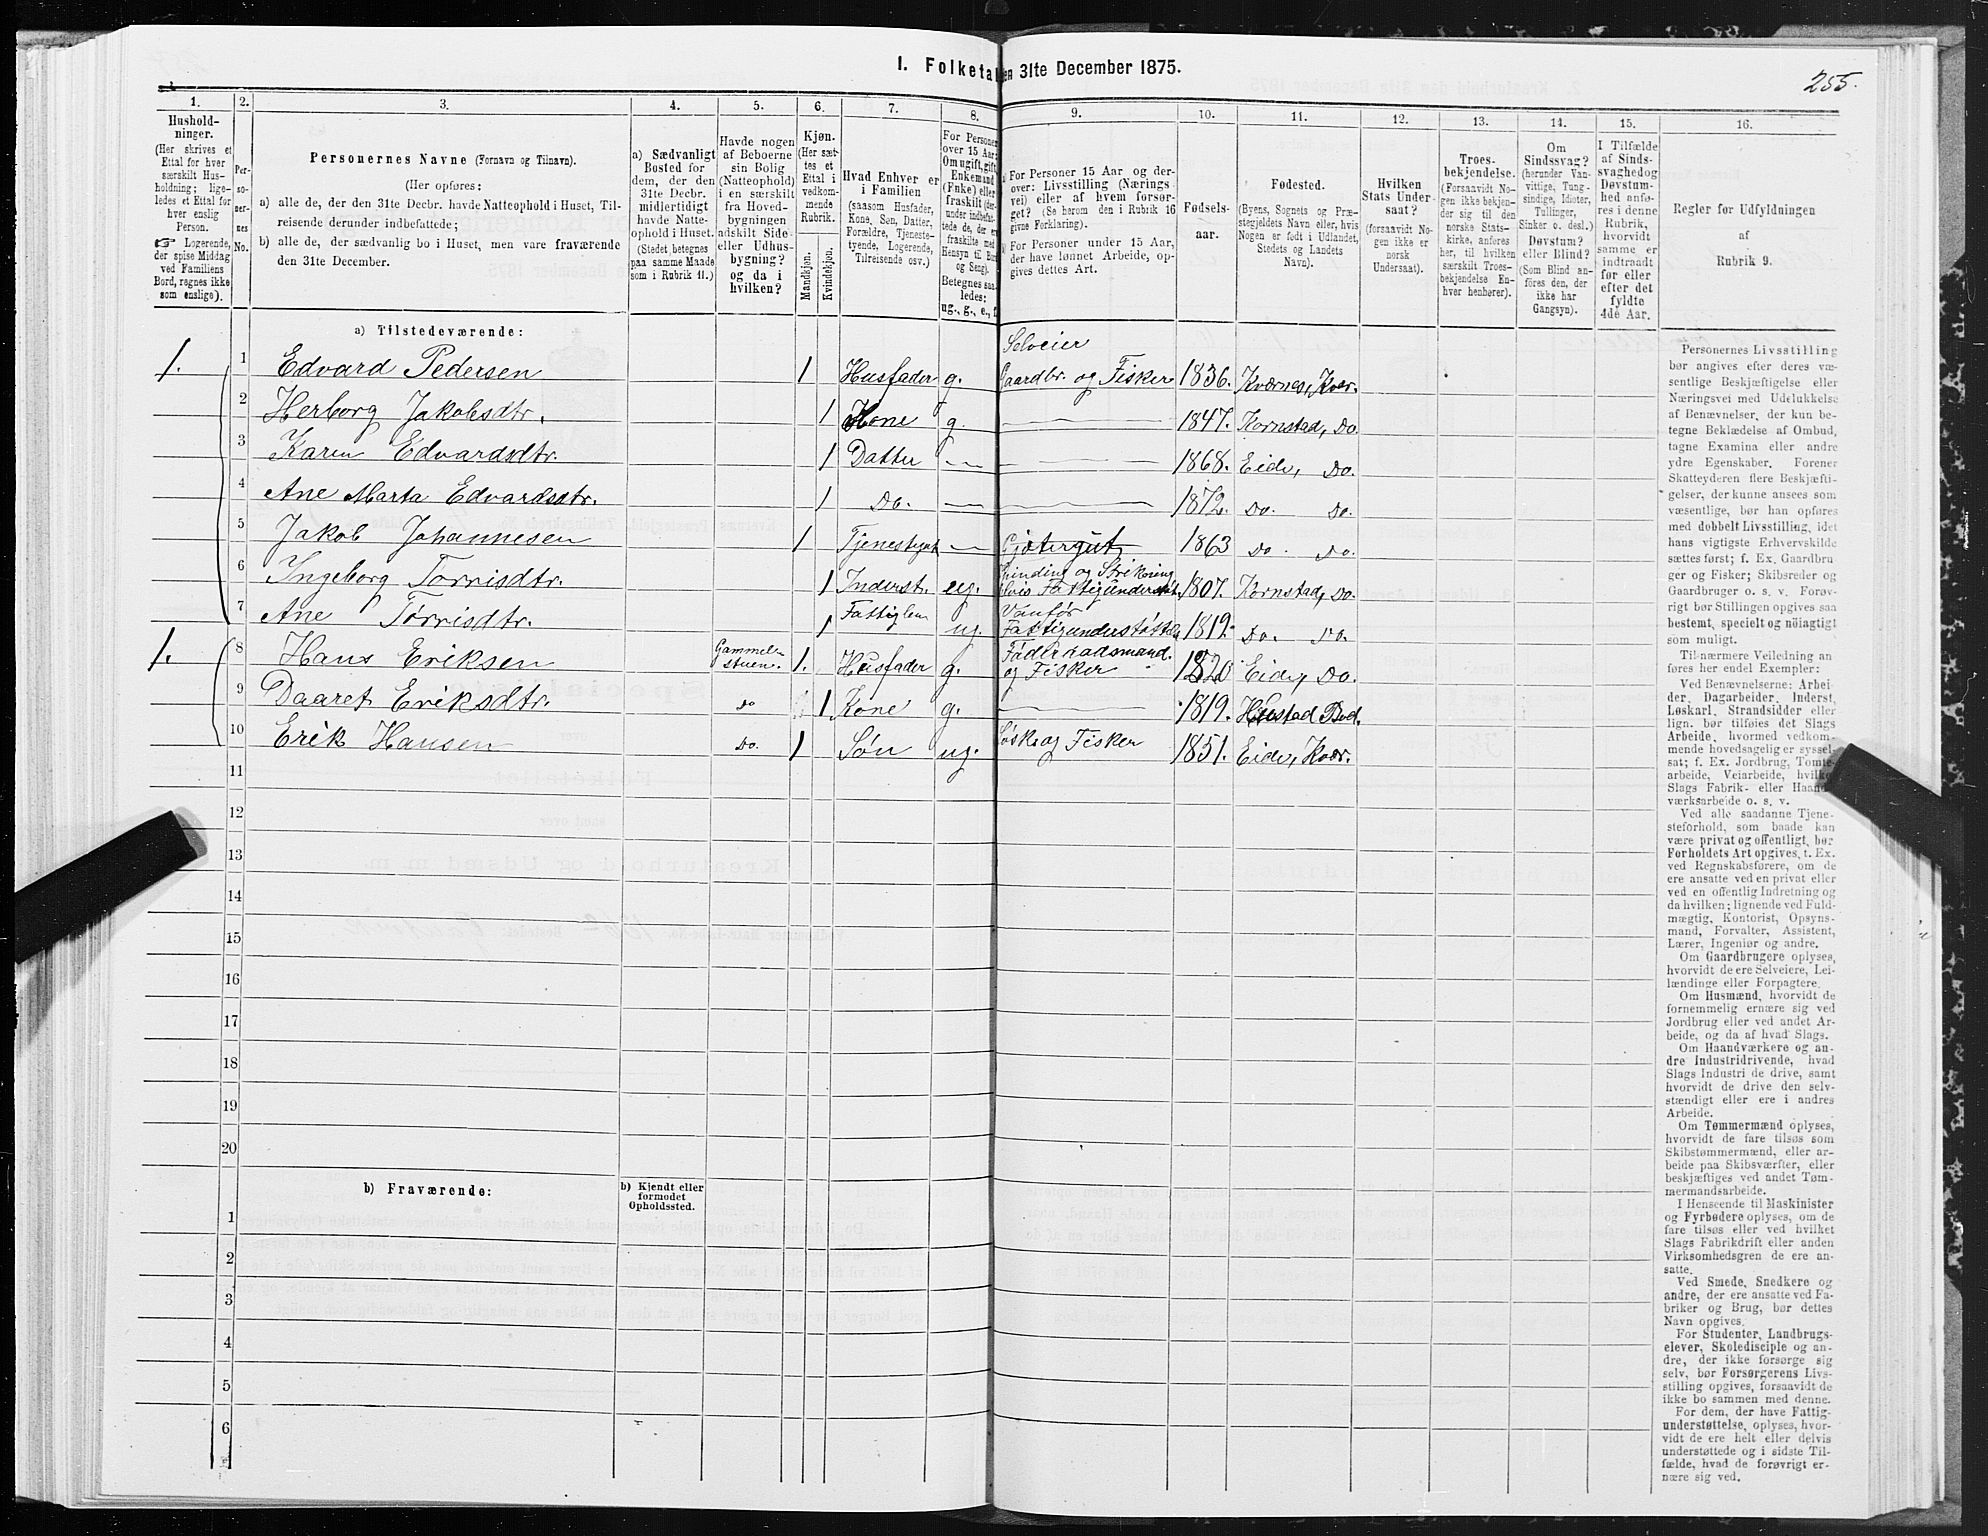 I. Folketa
en 31te December 1875.
255.
1.
2.
3.
4.
5.
6.
7.
8.
9.
10.
11.
12.
13.
14.
15.
16.
Hushold-
ninger.
(Her skrives et
Ettal for hver
særskilt Hus-
holdning; lige-
ledes et Ettal for
hver enslig
Person.
☞ Logerende,
der spise Middag
ved Familiens
Bord, regnes ikke
som enslige).
Per-
so-
ner-
nes
No.
Personernes Navne (Fornavn og Tilnavn).
(Her opføres:
a) alle de, der den 31te Decbr. havde Natteophold i Huset, Til-
reisende derunder indbefattede;
b) alle de, der sædvanlig bo i Huset, men vare fraværende
den 31te December.
a) Sædvanligt
Bosted for
dem, der den
31te Decbr.
midlertidigt
havde Natte-
ophold i Huset.
(Stedet betegnes
paa samme Maade
som i Rubrik 11.)
Havde nogen
af Beboerne
sin Bolig
(Natteophold)
i en særskilt
fra Hoved-
bygningen
adskilt Side-
eller Udhus-
bygning?
og da i
hvilken?
Kjøn.
(Her sæt-
tes et
Ettal i
vedkom-
mende
Rubrik.
Mandkjøn.
Kvindekjøn.
Hvad Enhver er
i Familien
(saasom Husfader,
Kone, Søn, Datter,
Forældre, Tjeneste-
tyende, Logerende,
Tilreisende osv.)
For Personer
over 15 Aar:
Om ugift, gift,
Enkemand
(Enke) eller
fraskilt (der-
under indbefat-
tede de, der er
fraskilte med
Hensyn til Bord
og Seng).
Betegnes saa-
ledes:
ug., g., e., f.
a) For Personer 15 Aar og der-
over: Livsstilling (Nærings-
vei) eller af hvem forsør-
get? (Se herom den i Rubrik 16
givne Forklaring).
b) For Personer under 15 Aar,
der have lønnet Arbeide, op-
gives dettes Art.
Fødsels-
aar.
Fødested.
(Byens, Sognets og Præ-
stegjeldets Navn eller, hvis
Nogen er født i Udlandet,
Stedets og Landets
Navn).
Hvilken
Stats Under-
saat?
(forsaavidt No-
gen ikke er
norsk
Undersaat).
Troes-
bekjendelse.
(Forsaavidt No-
gen ikke bekjen-
der sig til den
norske Stats-
kirke, anføres
her, til hvilken
særskilt Troes-
bekjendelse En-
hver henhører).
Om
Sindssvag?
(herunder Van-
vittige, Tung-
sindige, Idioter,
Tullinger,
Sinker o. desl.)
Døvstum?
eller Blind?
(Som Blind an-
føres den, der
ikke har
Gangsyn).
I Tilfælde
af Sinds-
svaghed og
Døvstum-
hed anfø-
res i denne
Rubrik,
hvorvidt
samme er
indtraadt
før eller
efter det
fyldte
4de Aar.
Regler for Udfyldningen
af
Rubrik 9.
a) Tilstedeværende:
1. 1 Edvard Pedersen 1 Husfader g. Selveier Gaardbr. og Fisker 1836. Kværnes, Kvær.
2 Herborg Jakobsdtr. 1 Kone g. — 1847. Kornstad, Do.
3 Karen Edvardsdtr. 1 Datter — — 1868. Eide, Do.
4 Ane Marta Edvardsdtr. 1 Do. — — 1872. Do. Do.
5 Jakob Johannesen 1 Tjenestegut — Gjætergut 1863 Do. Do.
6 Ingeborg Torrisdtr. 1 Inderst. Spinding og Strikning delvis Fattigunderstøt. 1807. Kornstad, Do.
7 Ane Tørrisdtr. 1 Fattiglem ug. Vanfør Fattigunderstøttet 1812. Do. Do.
1. 8 Hans Eriksen Gammel-stuen. 1. Husfader g. Føderaadsmand og Fisker 1820 Eide, Do.
9 Daaret Eriksdtr. Do 1 Kone g. — 1819. Hustad Bud.
10 Erik Hansen Do. 1 Søn ug. og Fisker 1851. Eide, Kvær.
11
12
13
14
15
16
17
18
19
20
b) Fraværende:
b) Kjendt eller
formodet
Opholdssted.
1
2
3
4
5
6
Personernes Livsstilling
bør angives efter deres væ-
sentlige Beskjæftigelse eller
Næringsvei med Udelukkelse
af Benævnelser, der kun be-
tegne Beklædelse af Ombud,
tagne Examina eller andre
ydre Egenskaber. Forener
Skatteyderen flere Beskjæfti-
gelser, der kunne ansees som
væsentlige, bør han opføres
med dobbelt Livsstilling, idet
hans vigtigste Erhvervskilde
sættes først; f. Ex. Gaardbru-
ger og Fisker; Skibsreder og
Gaardbruger o. s. v. Forøv-
rigt bør Stillingen opgives saa
bestemt, specielt og nøiagtigt
som muligt.
Til nærmere Veiledning an-
føres her endel Exempler:
Ved Benævnelserne: Arbei-
der, Dagarbeider, Inderst,
Løskarl, Strandsidder eller
lign. bør tilføies det Slags
Arbeide, hvormed vedkom-
mende hovedsagelig er syssel-
sat; f. Ex. Jordbrug, Tomte-
arbeide, Veiarbeide, hvilket
Slags Fabrik- eller Haand-
værksarbeide o. s. v.
Ved alle saadanne Tjene-
steforhold, som baade kan
være privat og offentligt, bør
Forholdets Art opgives, t. Ex.
ved Regnskabsførere, om de
ere ansatte ved en privat eller
ved en offentlig Indretning og
da hvilken; lignende ved Fuld-
mægtig, Kontorist, Opsyns-
mand, Forvalter, Assistent,
Lærer, Ingeniør og andre.
Om Gaardbrugere oplyses,
hvorvidt de ere Selveiere, Lei-
lændinge eller Forpagtere.
Om Husmænd, hvorvidt de
fornemmelig ernære sig ved
Jordbrug eller ved andet Ar-
beide, og da af hvad Slags.
Om Haandværkere og an-
dre Industridrivende, hvad
Slags Industri de drive, samt
hvorvidt de drive den selv-
stændigt eller ere i andres
Arbeide.
Om Tømmermænd oplyses,
hvorvidt de fare tilsøs som
Skibstømmermænd, eller ar-
beide paa Skibsværfter, eller
beskjæftiges ved andet Tøm-
mermandsarbeide.
I Henseende til Maskinister
og Fyrbødere oplyses, om de
fare tilsøs eller ved hvilket
Slags Fabrikdrift eller anden
Virksomhedsgren de ere an-
satte.
Ved Smede, Snedkere og
andre, der ere ansatte ved Fa-
briker og Brug, bør dettes
Navn opgives.
For Studenter, Landbrugs-
elever, Skoledisciple og an-
dre, der ikke forsørge sig
selv, bør Forsørgerens Livs-
stilling opgives, forsaavidt de
ikke bo sammen med denne.
For dem, der have Fattig-
understøttelse, oplyses, hvor-
vidt de ere helt eller delvis
understøttede og i sidste Til-
fælde, hvad de forøvrigt er-
nære sig ved.